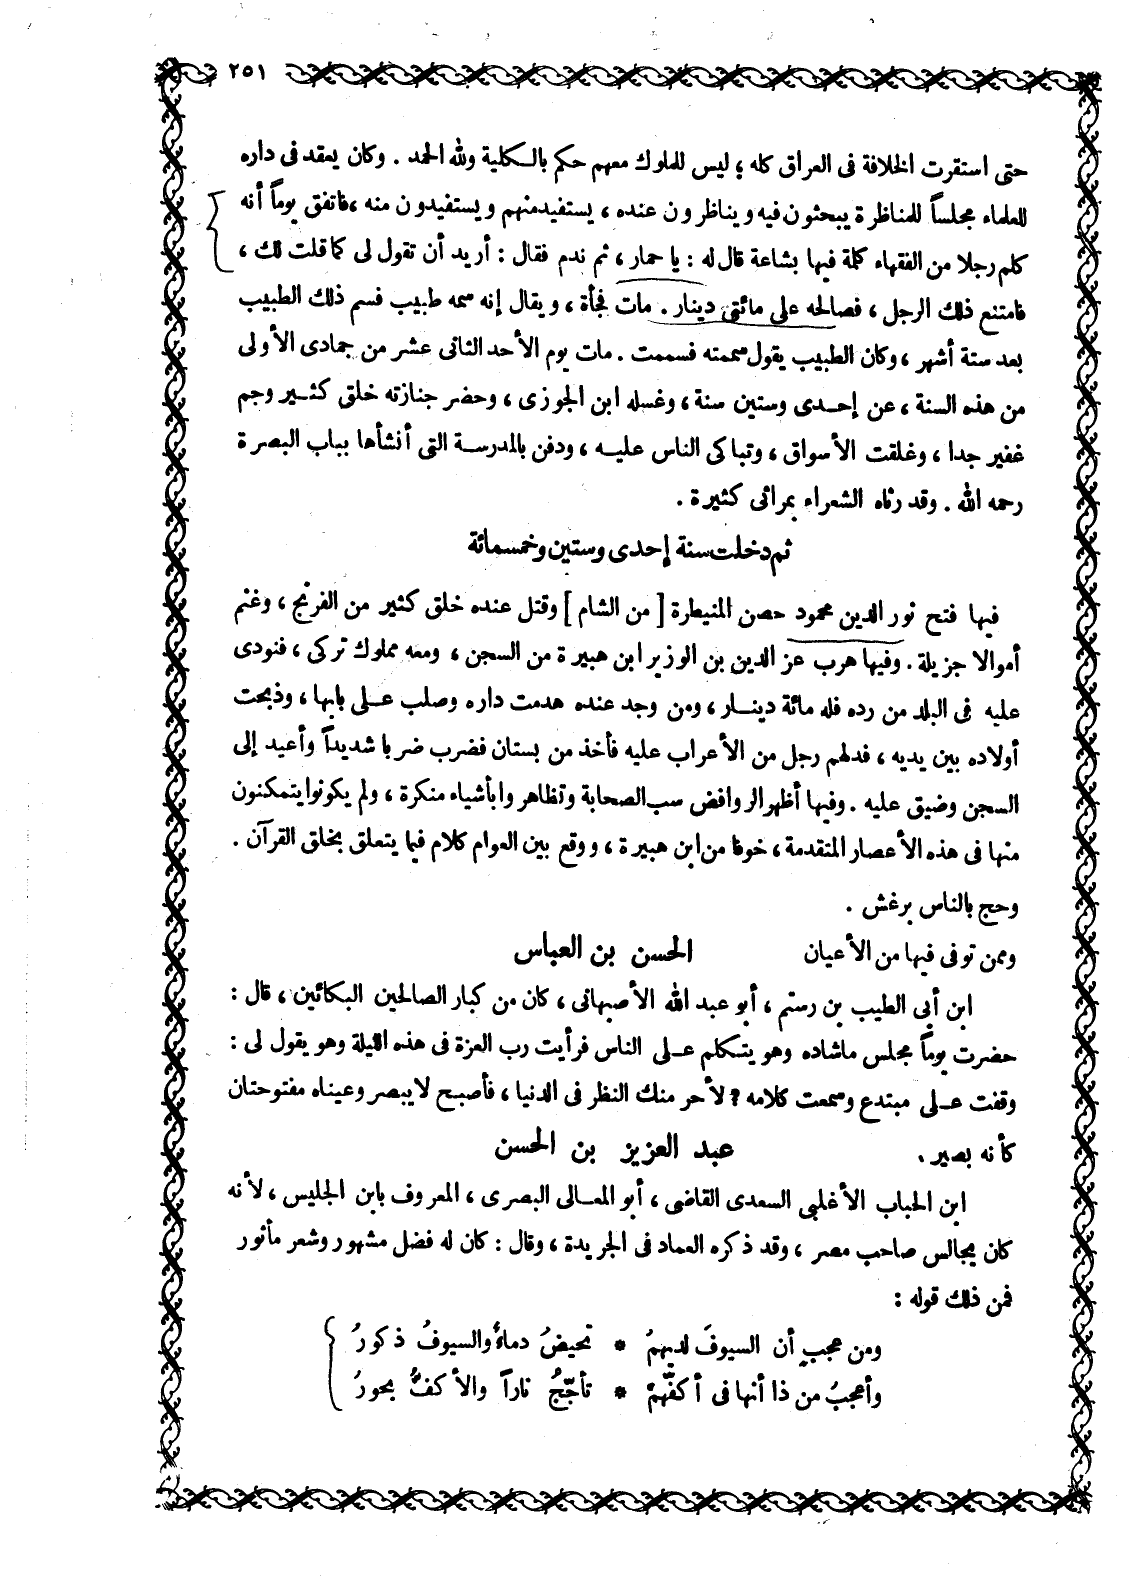 ٢٥١
حتى استقرت الخلافة فى العراق كله ؛ ليس للملوك معهم حكم بالكلية ولله الحمد . وكان يعقد فى داره
للعلماء مجلساً للمناظرة يبحثون فيه ويناظرون عنده ، يستفيد منهم ويستفيدون منه ، فاتفق يوماً أنه
كلم رجلا من الفقهاء كلمة فيها بشاعة قال له : يا حمار ، ثم ندم فقال : أريد أن تقول لى كما قلت لك ،
فامتنع ذلك الرجل ، فصالحه على مائتى دينار . مات فجأة ، ويقال إنه سمه طبيب فسم ذلك الطبيب
بعد ستة أشهر ، وكان الطبيب يقول سممته فسممت . مات يوم الأحد الثانى عشر من جمادى الأولى
من هذه السنة ، عن إحدى وستين سنة ، وغسله ابن الجوزى ، وحضر جنازته خلق كثير وجم
غفير جدا ، وغلقت الأسواق ، وتباكى الناس عليه ، ودفن بالمدرسة التى أنشأها بباب البصرة
رحمه الله . وقد رثاه الشعراء بمراثى كثيرة .
ثم دخلت سنة إحدى وستين وخمسمائة
فيها فتح نور الدين محمود حصن المنيطرة [ من الشام ] وقتل عنده خلق كثير من الفرنج ، وغنم
أموالا جزيلة . وفيها هرب عز الدين بن الوزير ابن هبيرة من السجن ، ومعه مملوك تركى ، فنودى
عليه فى البلد من رده فله مائة دينار ، ومن وجد عنده هدمت داره وصلب على بابها ، وذبحت
أولاده بين يديه ، فدلهم رجل من الأعراب عليه فأخذ من بستان فضرب ضربا شديداً وأعيد إلى
السجن وضيق عليه . وفيها أظهر الروافض سب الصحابة وتظاهروا بأشياء منكرة ، ولم يكونوا يتمكنون
منها فى هذه الأعصار المتقدمة ، خوفا من ابن هبيرة ، ووقع بين العوام كلام فيما يتعلق بخلق القرآن .
وحج بالناس برغش .
وممن توفى فيها من الأعيان الحسن بن العباس
ابن أبى الطيب بن رستم ، أبو عبد الله الأصبهانى ، كان من كبار الصالحين البكائين ، قال :
حضرت يوماً مجلس ماشاده وهو يتكلم على الناس فرأيت رب العزة فى هذه الليلة وهو يقول لى :
وقفت على مبتدع وسمعت كلامه ? لأحرمنك النظر فى الدنيا ، فأصبح لا يبصر وعيناه مفتوحتان
كأنه بصير . عبد العزيز بن الحسن
ابن الحباب الأغلبى السعدى القاضى ، أبو المعالى البصرى ، المعروف بابن الجليس ، لأنه
كان يجالس صاحب مصر ، وقد ذكره العماد فى الجريدة ، وقال : كان له فضل مشهور وشعر مأثور
فمن ذلك قوله :
ومن عجبٍ أن السيوفَ لديهمُ * تحيضُ دماءً والسيوفُ ذكورُ
وأعجبُ من ذا أنها فى أكفّهمْ * تأججُّ ناراً والأكفُّ بحورُ